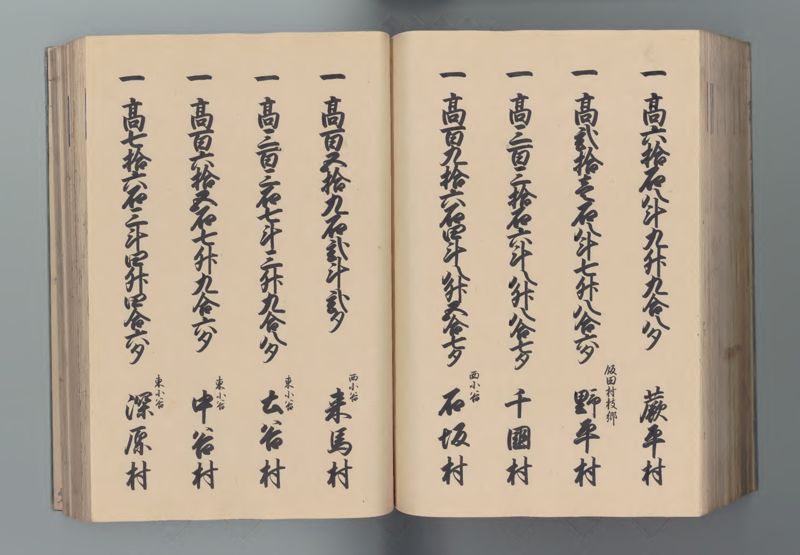 一 髙六拾石八斗九升九合八夕 蕨平村
一 髙弐拾壱石八斗七升八合六夕 飯田村枝郷 野平村
一 髙三百三拾石六斗八升八合七夕 千國村
一 髙百九拾六石四斗八升五合七夕 西小谷 石坂村
一 髙百五拾九石弐斗弐夕 西小谷 来馬村
一 髙三百三石七斗三升九合八夕 東小谷 土谷村
一 髙百六拾五石七升九合六夕 東小谷 中谷村
一 髙七拾六石三斗四升四合六夕 東小谷 深原村